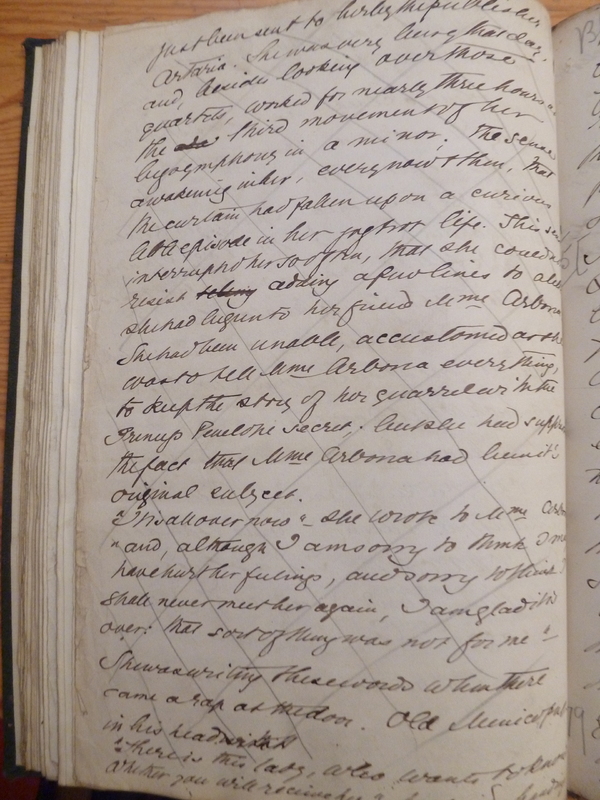 just been sent to her by the publisher
Artaria. She was very busy that day,
and, besides looking over those
quartets, worked for nearly three hours
the third movement of her
symphony in a minor; the sense
awakening in her, every now & then, that
the curtain had fallen upon a curious
little episode in her life. This
interrupted her so often, that she could
resist telling adding a few lines to
she had begun to her friend Mme Arbona
She had been unable, accustomed as she
was to tell Mme Arbona everything,
to keep the story of her quarrel with the
Princess Penelope secret; but she had
the fact that Mme Arbona had been its
original subject.
"It is all over now" – she wrote to Mme
"and, although I am sorry to think I
have hurt her feelings, and sorry to think I
shall never meet her again, I am glad it is
over: that sort of thing was not for me"–
She was writing these words when there
came a rap at the door. Old Menico put
in his head
"there is this lady, who wants to know
whether you will receive her